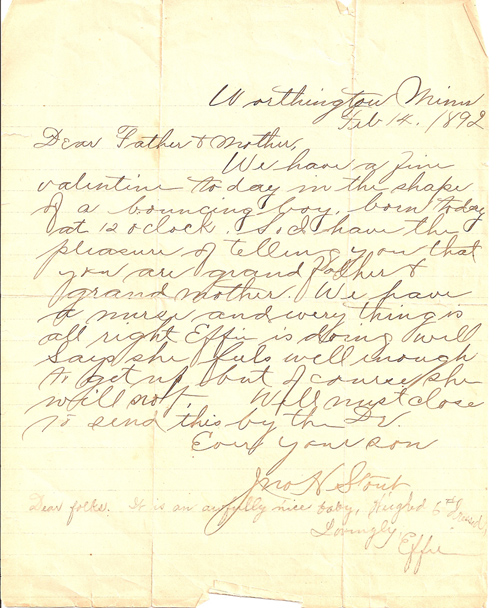 Worthington Minn
Feb 14. 1892
Dear Father & Mother,
We have a fine
valentine to day in the shape
of a bouncing boy, born today
at 12 oclock. So I have the
pleasure of telling you that
you are grand father &
grand mother. We have
a nurse and every thing is
all right Effie is doing well
Says she feels well enough
to get up but of course she
will not. Well must close
to send this by the Dr.
Ever your son
Jno H Stout
Dear folks. It is an awfully nice baby, Weighed 6
Lovingly
Effie